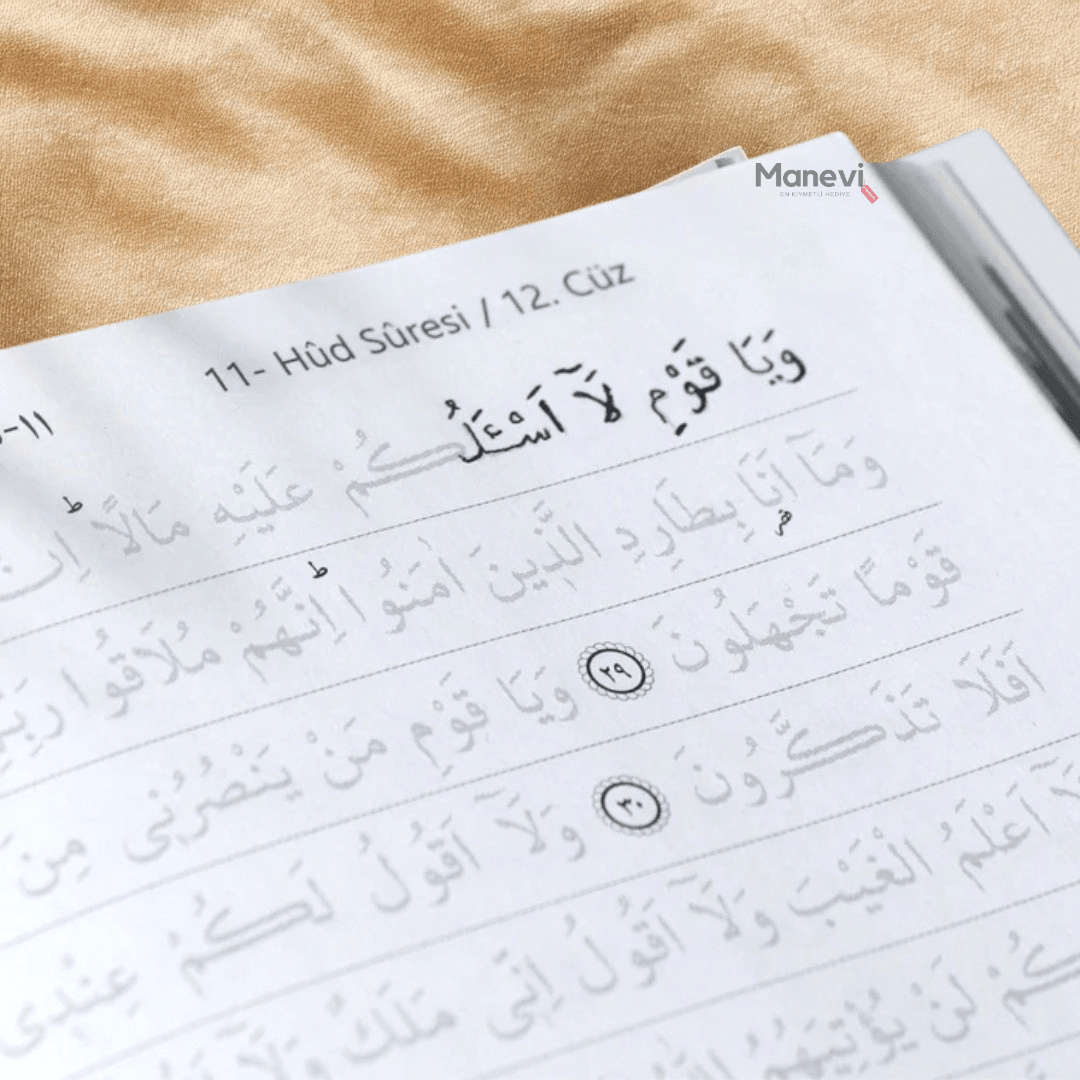 Manevi
EN KIYMETLİ HEDİYE
11- Hûd Sûresi / 12. Cüz
وَيَا قَوْمِ لَٓا اَسْـَٔلُكُمْ عَلَيْهِ مَالًاۜ
وَمَٓا اَنَا۬ بِطَارِدِ الَّذ۪ينَ اٰمَنُواۜ اِنَّهُمْ مُلَاقُوا
قَوْمًا تَجْهَلُونَ ﴿٢٩﴾ وَيَا قَوْمِ مَنْ يَنْصُرُن۪ي مِنَ
اَفَلَا تَذَكَّرُونَ ﴿٣٠﴾ وَلَٓا اَقُولُ لَكُمْ عِنْد۪ي
اَعْلَمُ الْغَيْبَ وَلَٓا اَقُولُ اِنّ۪ي مَلَكٌ
لَنْ يُؤْتِيَهُمُ